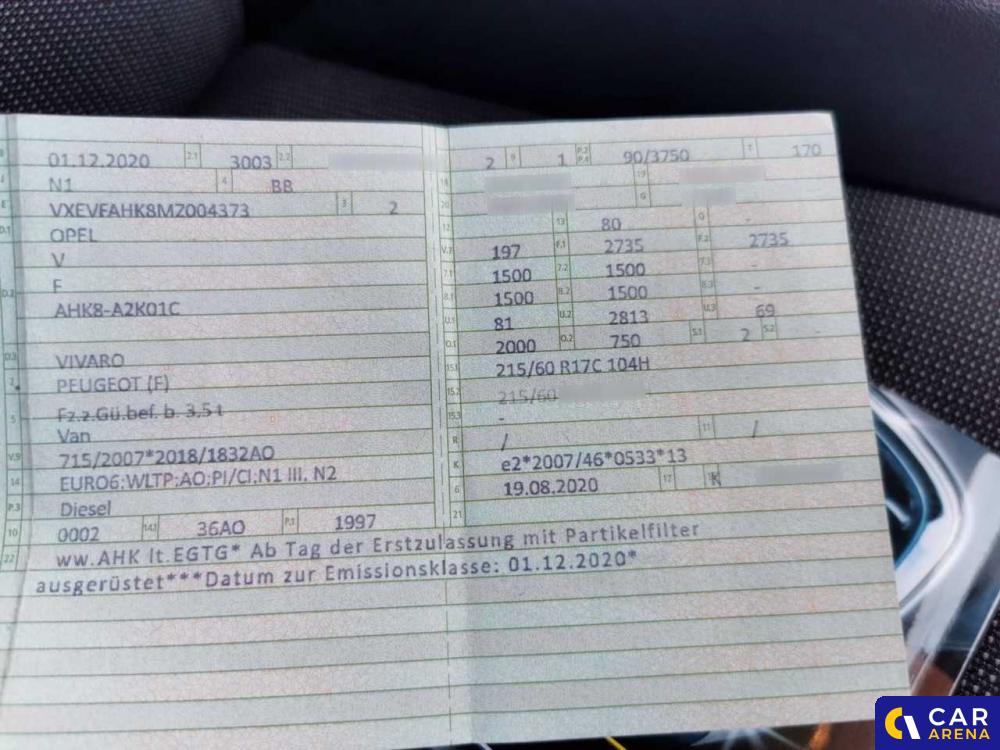 B 01.12.2020 2.1 3003 2.2
J N1 4 BB
E VXEVFAHK8MZ004373 3 2
D.1 OPEL
V
D.2 F
AHK8-A2K01C
D.3 VIVARO
2 PEUGEOT (F)
5 Fz.z.Gü.bef. b. 3,5 t
Van
V.9 715/2007*2018/1832AO
14 EURO6;WLTP;AO;PI/CI;N1 III, N2
P.3 Diesel
10 0002 14.1 36AO P.1 1997
22 ww.AHK lt.EGTG* Ab Tag der Erstzulassung mit Partikelfilter
ausgerüstet***Datum zur Emissionsklasse: 01.12.2020*
2 9 1 P.2 P.4 90/3750 T 170
18 19
20 G
12 13 80 Q -
V.7 197 F.1 2735 F.2 2735
7.1 1500 7.2 1500 7.3 -
8.1 1500 8.2 1500 8.3 -
U.1 81 U.2 2813 U.3 69
O.1 2000 O.2 750 S.1 2 S.2 -
15.1 215/60 R17C 104H
15.2 215/60
15.3 -
R / 11 /
K e2*2007/46*0533*13
6 19.08.2020 17 K
21
CAR
ARENA